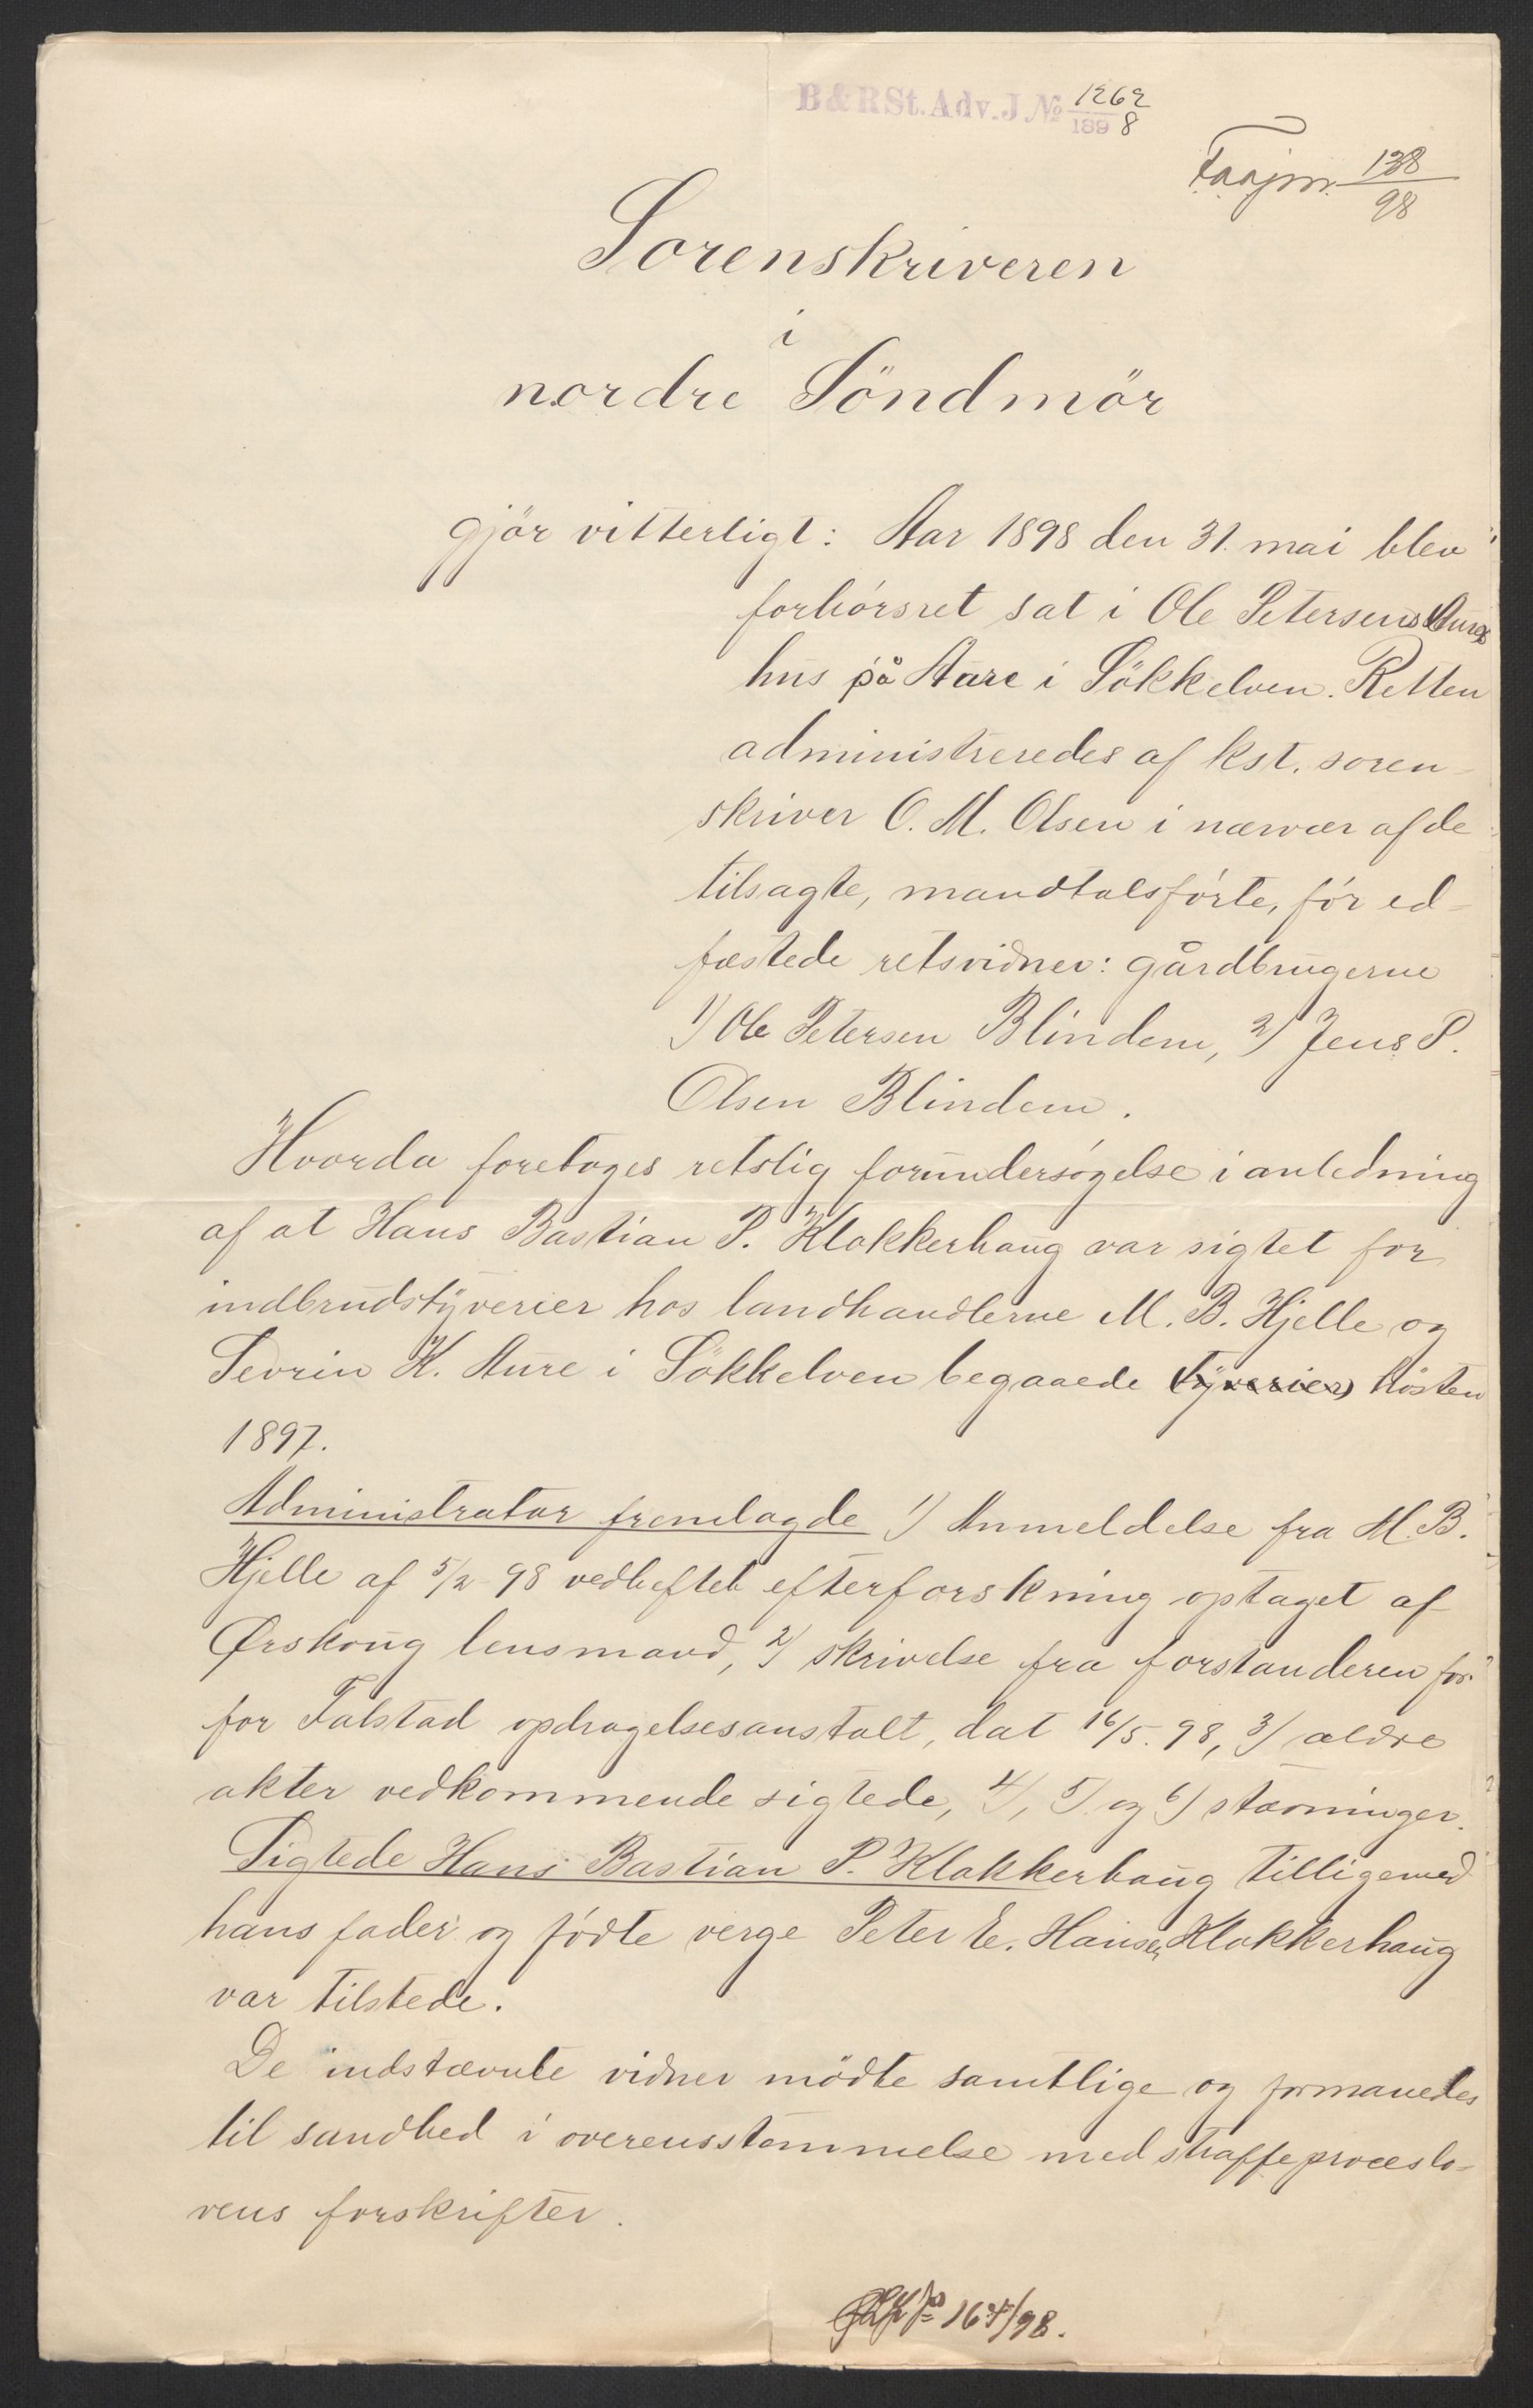 B & R St. Adv. J № 1262/1898
138/98
Sorenskriveren
i
nordre Söndmör
gjör vitterligt: Aar 1898 den 31. mai blev
forhörsret sat i Ole Petersens Aure
hus på Aure i Sökkelven. Retten
administreredes af kst. soren-
skriver O. M. Olsen i nærvær af de
tilsagte, mandtalsförte, för ed-
fæstede retsvidner: gårdbrugerne
1) Ole Petersen Blindem, 2) Jens P.
Olsen Blindem.
Hvorda foretoges retslig forundersögelse i anledning
af at Hans Bastian P. Klokkerhaug var sigtet for
indbrudstyverier hos landhandlerne M. B. Hjelle og
Sevrin K. Aure i Sökkelven begaaede tyverier hösten
1897.
Administrator fremlagde 1) Anmeldelse fra M. B.
Hjelle af 5/2 98 vedheftet efterforskning optaget af
Ørskoug lensmand, 2) skrivelse fra forstanderen for
for Falstad opdragelsesanstalt, dat 16/5. 98, 3) ældre
akter vedkommende sigtede, 4), 5) og 6) stævninger.
Sigtede Hans Bastian P. Klokkerhaug tilligemed
hans fader og födte verge Peter E. Hansen Klokkerhaug
var tilstede.
De indstævnte vidner mödte samtlige og formanedes
til sandhed i overensstemmelse med straffeproceslo-
vens forskrifter.
164/98.